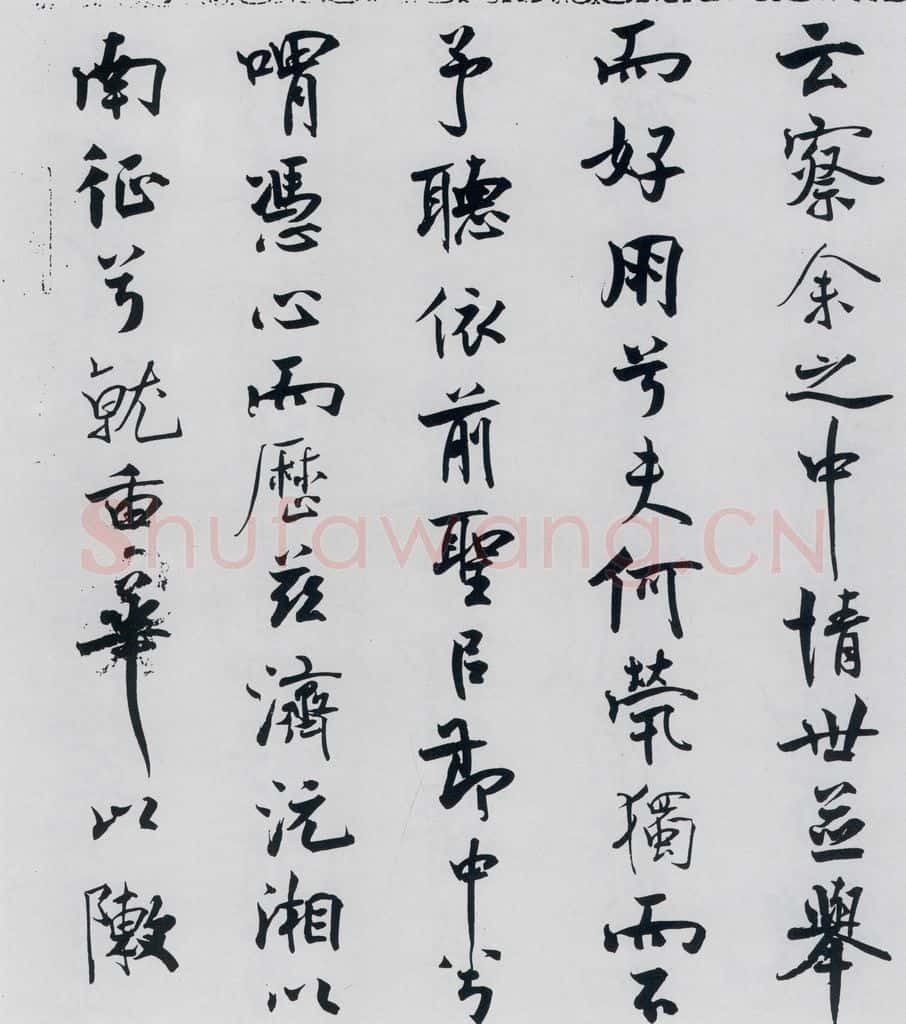 云察余之中情世並舉
而好朋兮夫何煢獨而不
予聽依前聖㠯節中兮
喟憑心而歷茲濟沅湘以
南征兮就重華以敶
Shufawang.CN